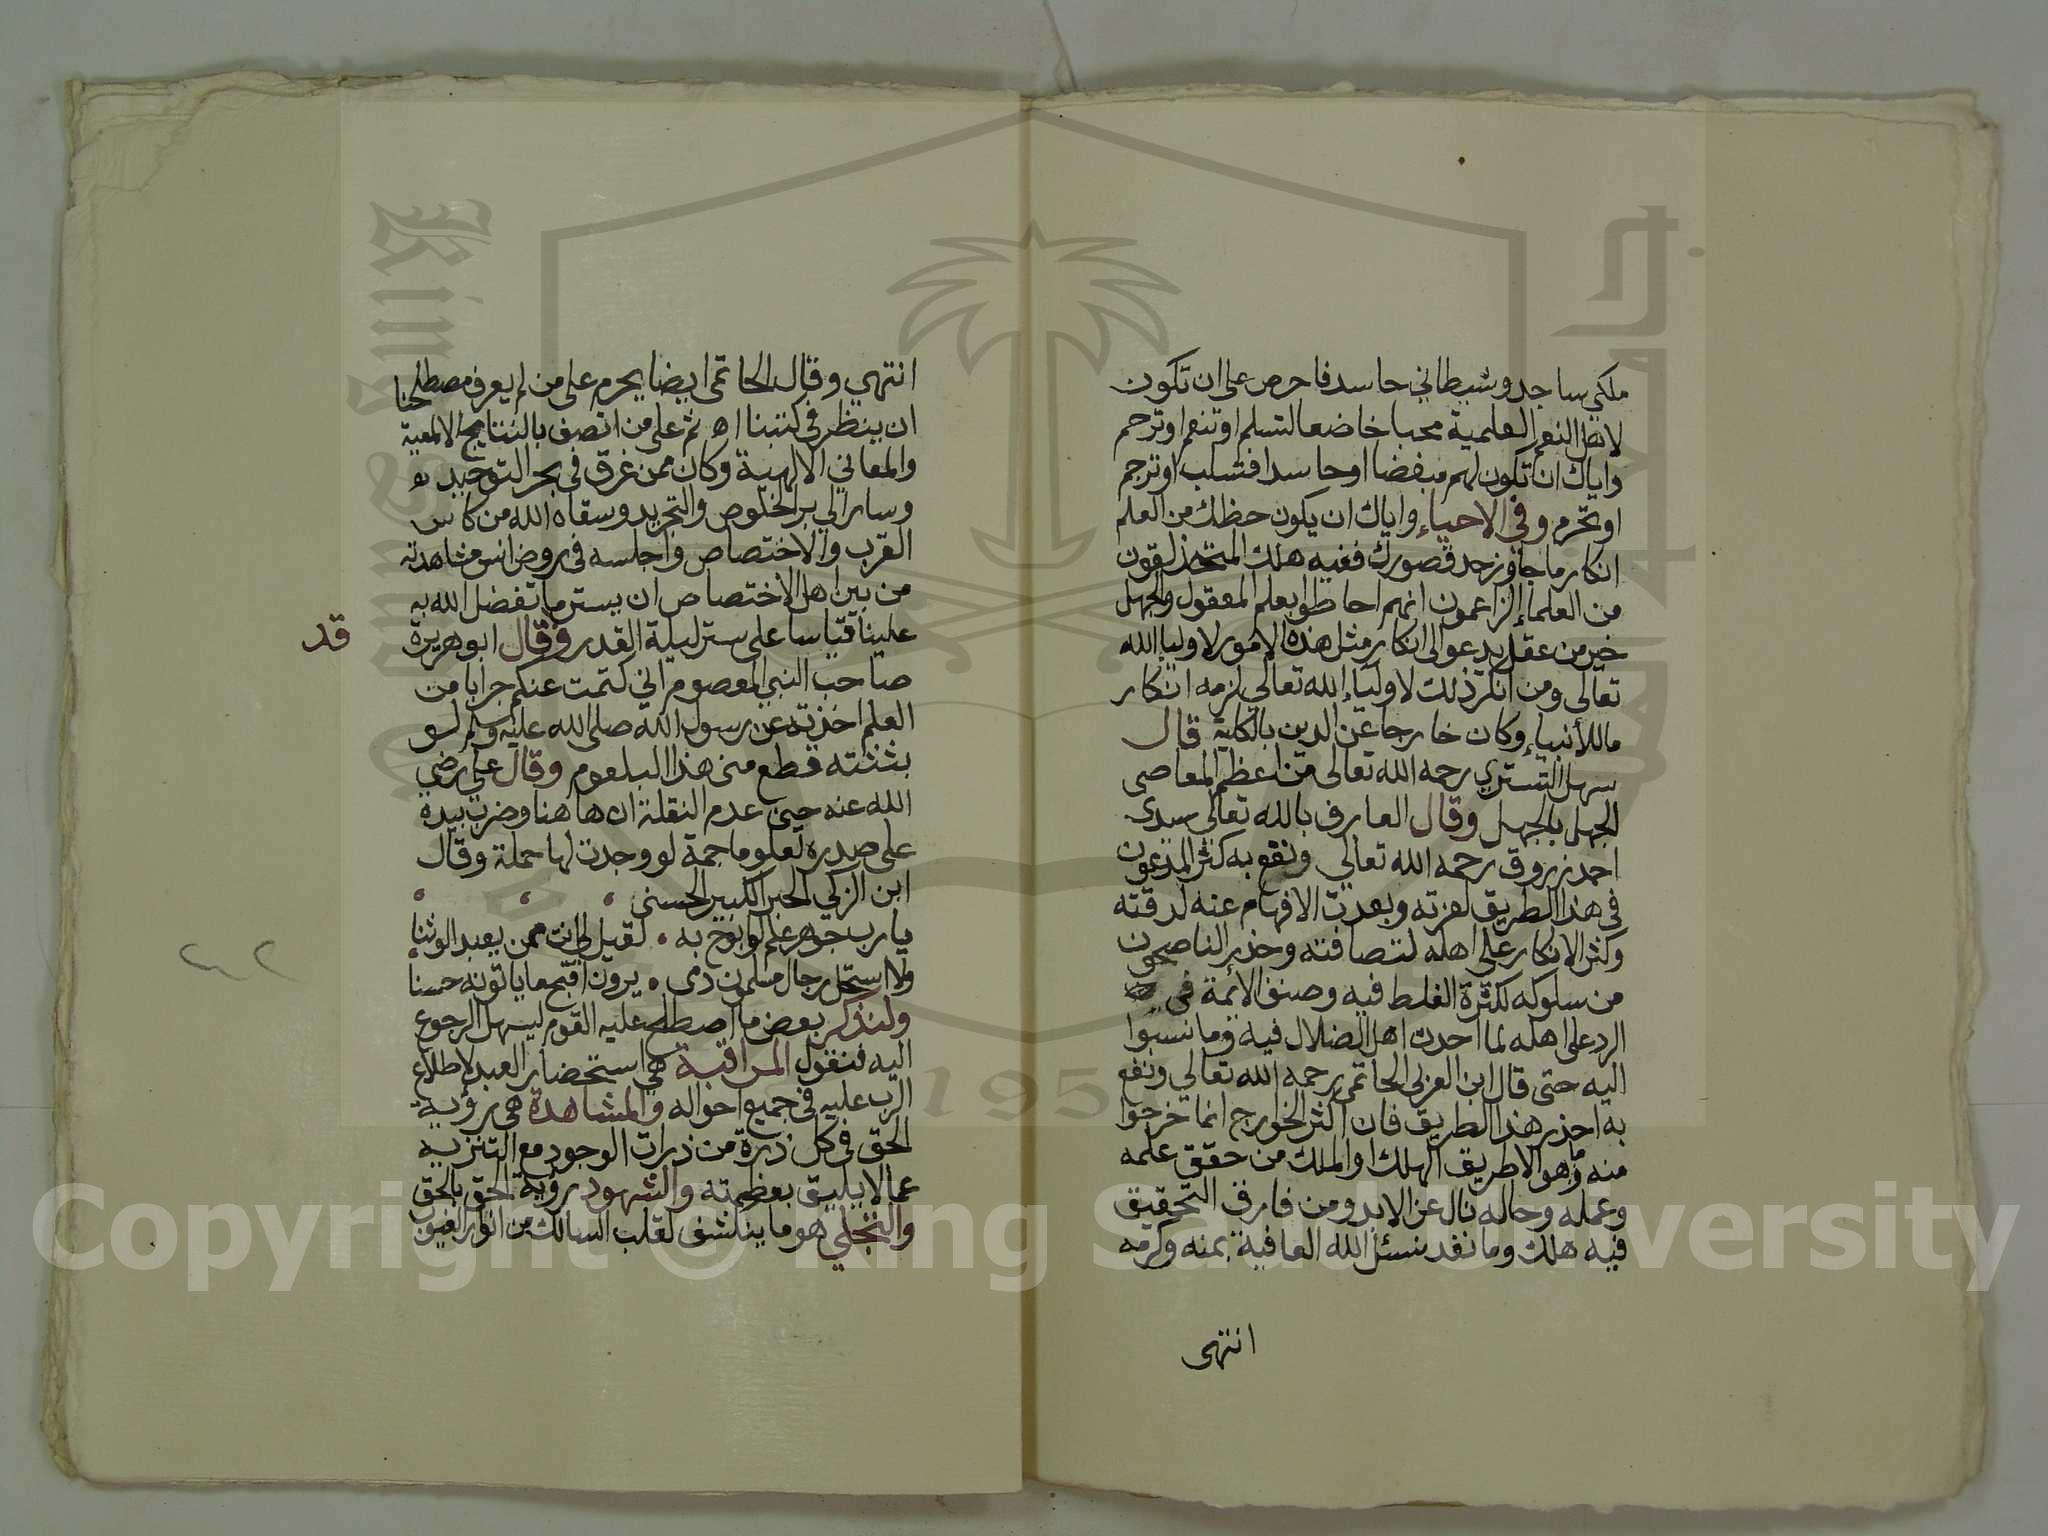 ملكي ساجد وشيطاني حاسد فاحرص على ان تكون
لاهل النعم العلمية محبا خاضعا لتسلم او تنعم او ترحم
واياك ان تكون لهم مبغضا او حاسدا فتسلب او ترجم
او تحرم وفي الاحياء واياك ان يكون حظك من العلم
انكار ما جاوز حد قصورك ففيه هلك المتحذلقون
من العلماء الزاعمون انهم احاطوا بعلم المعقول والجهل
خير من عقل يدعو الى انكار مثل هذه الامور لاولياء الله
تعالى ومن انكر ذلك لاولياء الله تعالى لزمه انكار
ما للأنبياء وكان خارجا عن الدين بالكلية قال
سهل التستري رحمه الله تعالى من اعظم المعاصي
الجهل بالجهل وقال العارف بالله تعالى سيدي
احمد زروق رحمه الله تعالى ونفع به كثر المدعون
في هذا الطريق لعزته وبعدت الافهام عنه لدقته
وكثر الانكار على اهله لتصافته وحذر الناصحون
من سلوكه لكثرة الغلط فيه وصنف الأئمة في
الرد على اهله لما احدث اهل الضلال فيه وما نسبوا
اليه حتى قال ابن العربي الحاتمي رحمه الله تعالى ونفع
به احذر هذا الطريق فان اكثر الخوارج انما خرجوا
منه وما هو الا طريق الهلك او الملك من حقق علمه
وعمله وحاله نال عز الابد ومن فارق التحقيق
فيه هلك وما نفد نسئل الله العافية بمنه وكرمه
انتهى
انتهى وقال الحاتمي ايضا يحرم على من لم يعرف مصطلحنا
ان ينظر في كتبنا اه ثم على من اتصف بالنتايج الالمعية
والمعاني الالهية وكان ممن غرق في بحر التوحيد
وسار الى بر الخلوص والتجريد وسقاه الله من كاس
القرب والاختصاص واجلسه في روض انس مشاهدته
من بين اهل الاختصاص ان يستر ما تفضل الله به
علينا قياسا على ستر ليلة القدر وقال ابو هريرة
قد
صاحب النبي المعصوم اني كتمت عنكم جرابا من
العلم اخذته عن رسول الله صلى الله عليه وسلم لو
بثثته قطع مني هذا البلعوم وقال علي رضي
الله عنه حين عدم النقلة ان ها هنا وضرب بيده
على صدره لعلوما جمة لو وجدت لها حملة وقال
ابن الزكي الحبر الكبير الحسنى
يا رب جوهر علم لو ابوح به . لقيل لي انت ممن يعبد الوثنا
ولا استحل رجال مسلمون دمي . يرون اقبح ما ياتونه حسنا
ولنذكر بعض ما اصطلح عليه القوم ليسهل الرجوع
اليه فنقول المراقبة هي استحضار العبد لاطلاع
الرب عليه في جميع احواله والمشاهدة هي رؤية
الحق في كل ذرة من ذرات الوجود مع التنزيه
عما لا يليق بعظمته والشهود رؤية الحق بالحق
والتجلي هو ما ينكشف لقلب السالك من انوار الغيوب
Copyright © King Saud University